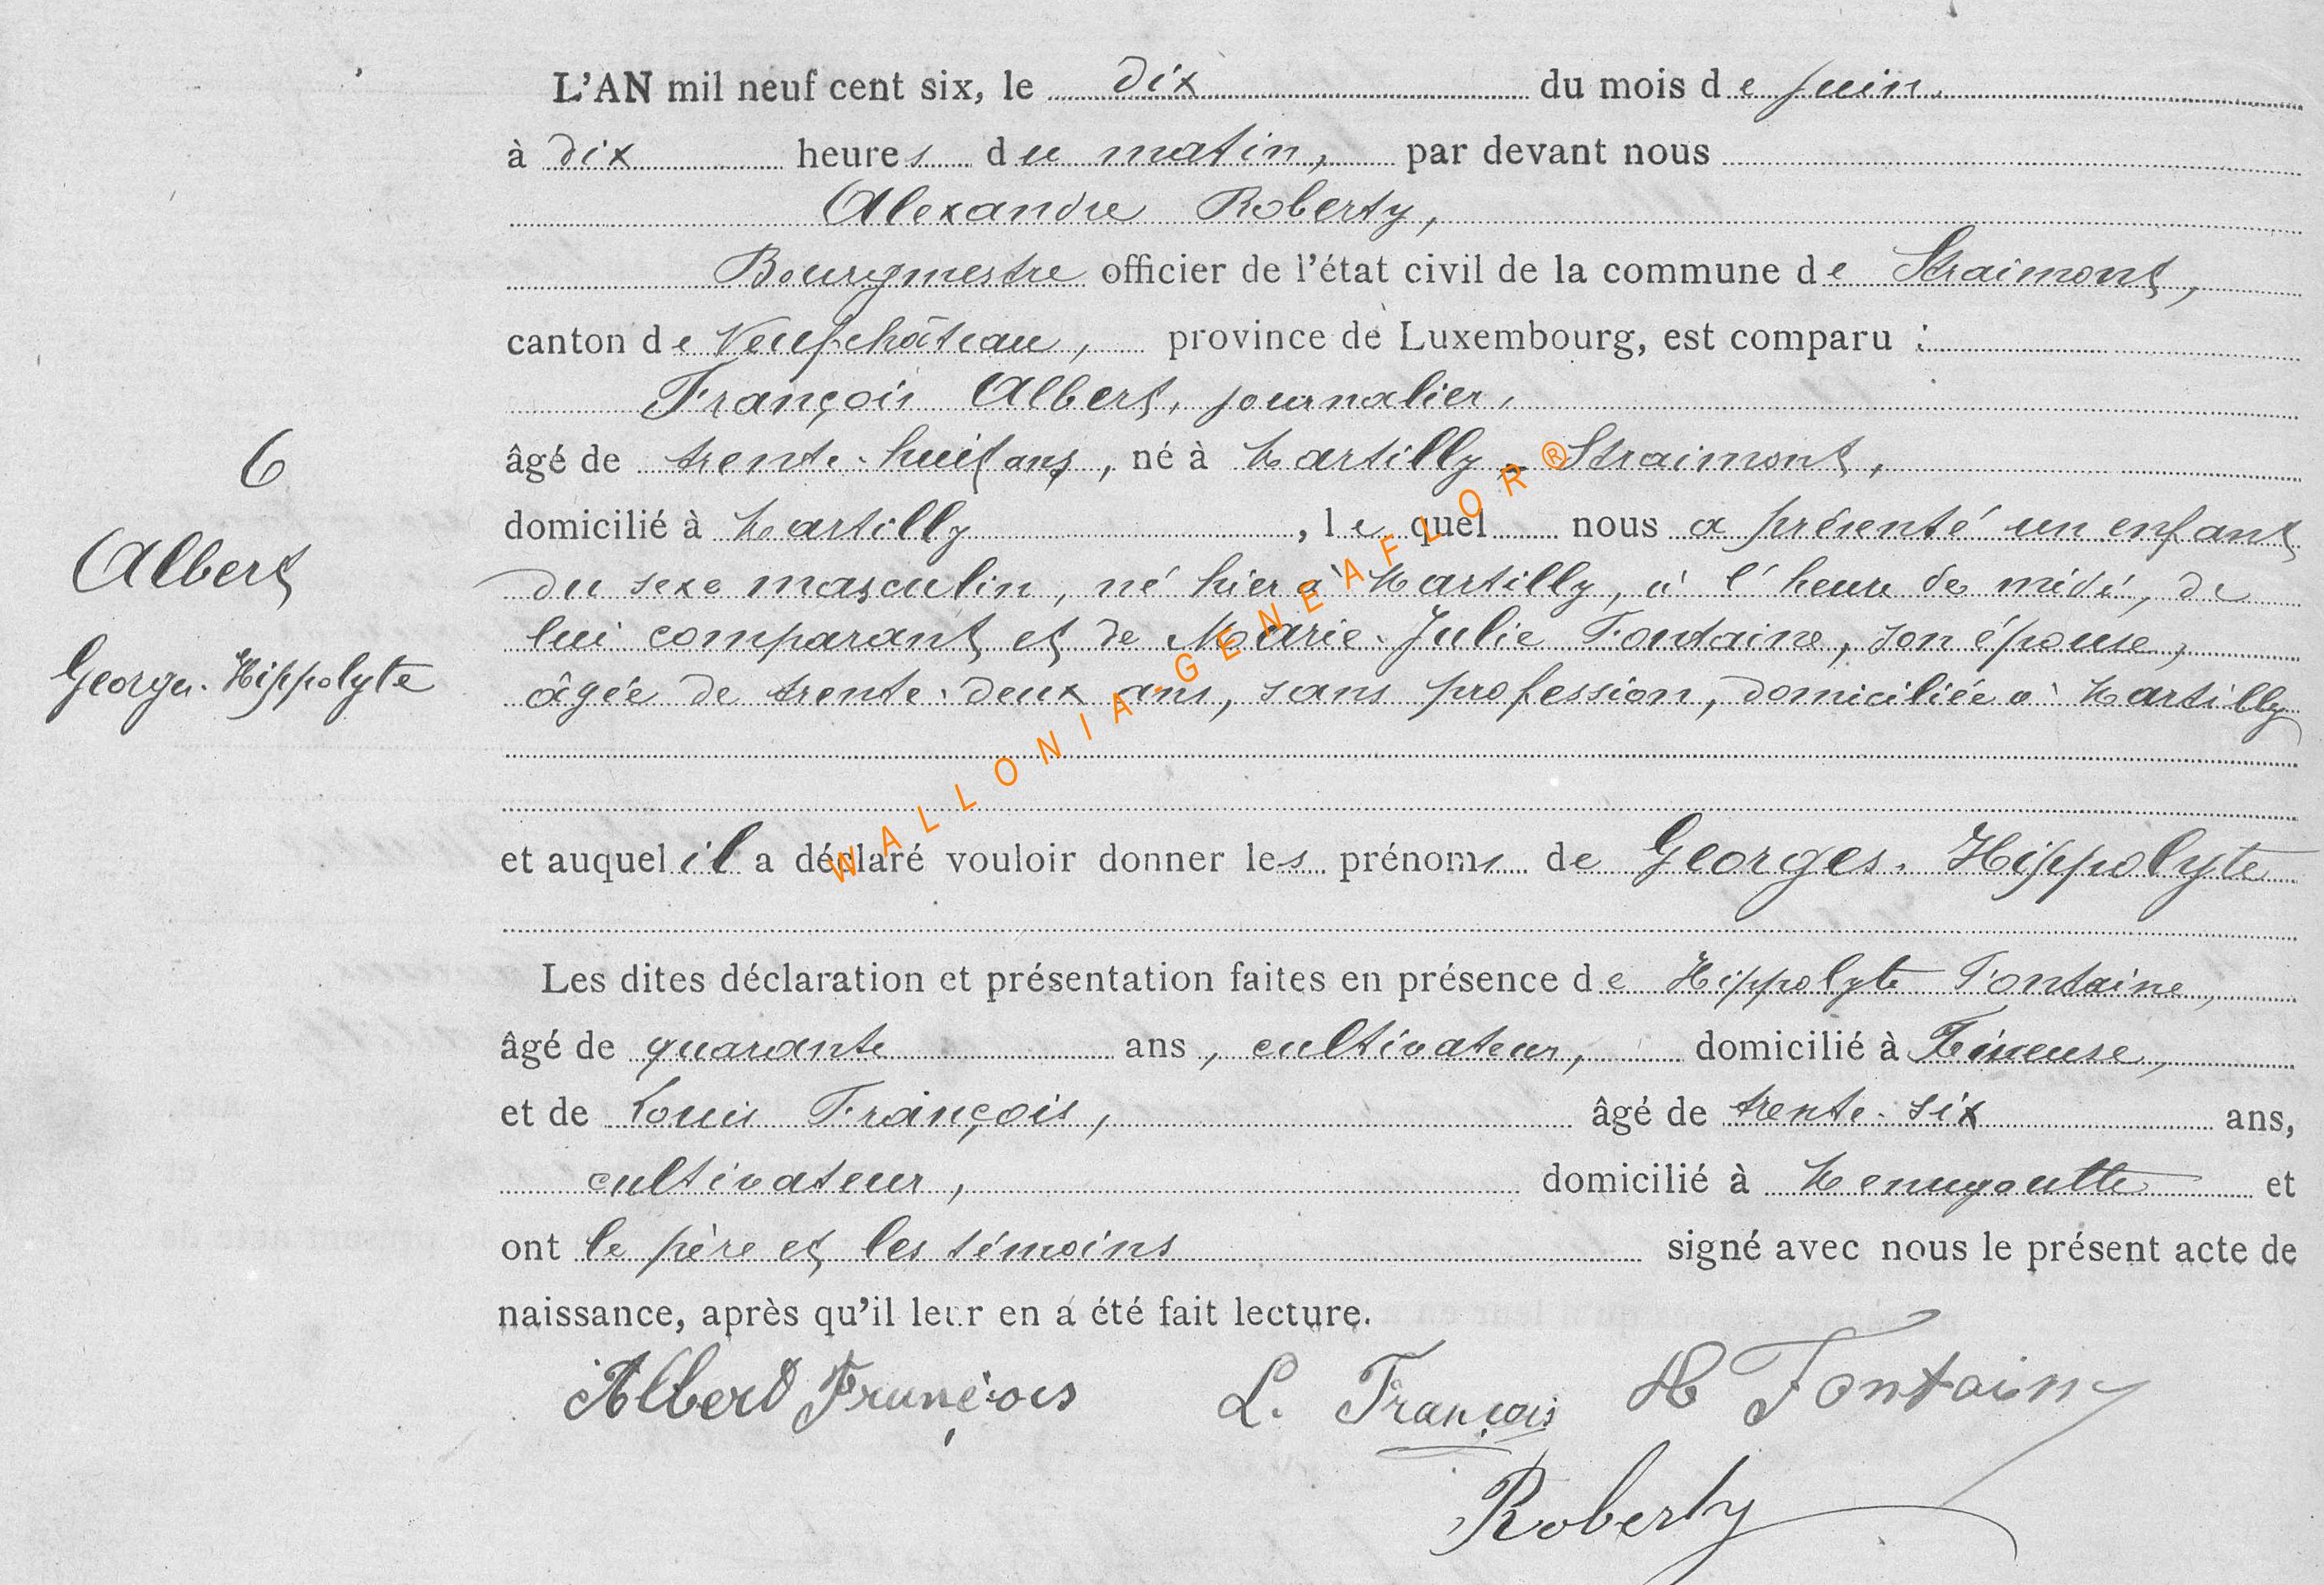 L'AN mil neuf cent six, le dix du mois de juin,
à dix heures du matin, par devant nous
Alexandre Roberty,
Bourgmestre officier de l'état civil de la commune de Straimont,
canton de Neufchâteau, province de Luxembourg, est comparu :
François Albert, journalier,
âgé de trente-huit ans, né à Martilly - Straimont,
6
domicilié à Martilly, lequel nous a présenté un enfant
Albert
du sexe masculin, né hier à Martilly, à l'heure de midi, de
lui comparant et de Marie-Julie Fontaine, son épouse,
Georges-Hippolyte
âgée de trente-deux ans, sans profession, domiciliée à Martilly
et auquel il a déclaré vouloir donner les prénoms de Georges-Hippolyte
Les dites déclaration et présentation faites en présence de Hippolyte Fontaine,
âgé de quarante ans, cultivateur, domicilié à
et de Louis François, âgé de trente-six ans,
cultivateur, domicilié à Menugoutte et
ont le père et les témoins signé avec nous le présent acte de
naissance, après qu'il leur en a été fait lecture.
Albert François L. François H Fontaine
Roberty
WALLONIA-GENEAFLOR®